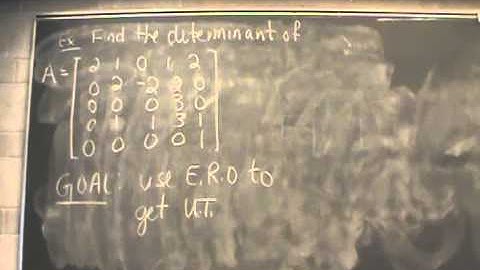 Ex Find the determinant of
A= 2 1 0 1 2
0 2 -2 2 0
0 0 0 3 0
0 1 1 3 1
0 0 0 0 1
GOAL: use E.R.O to
get U.T.